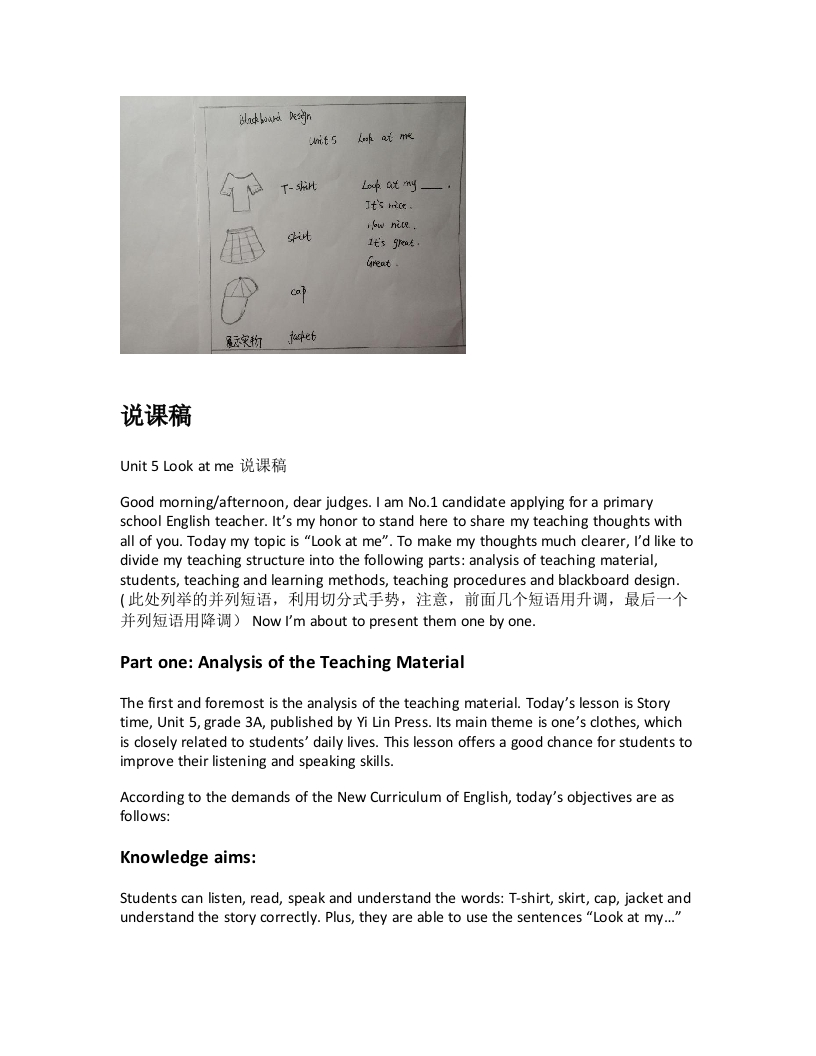 Blackboard Design
Unit 5 Look at me
T-shirt Look at my ___ .
It's nice.
How nice.
skirt
It's great.
Great.
cap
展示实物 jacket
说课稿
Unit 5 Look at me 说课稿
Good morning/afternoon, dear judges. I am No.1 candidate applying for a primary
school English teacher. It’s my honor to stand here to share my teaching thoughts with
all of you. Today my topic is “Look at me”. To make my thoughts much clearer, I’d like to
divide my teaching structure into the following parts: analysis of teaching material,
students, teaching and learning methods, teaching procedures and blackboard design.
( 此处列举的并列短语，利用切分式手势，注意，前面几个短语用升调，最后一个
并列短语用降调） Now I’m about to present them one by one.
Part one: Analysis of the Teaching Material
The first and foremost is the analysis of the teaching material. Today’s lesson is Story
time, Unit 5, grade 3A, published by Yi Lin Press. Its main theme is one’s clothes, which
is closely related to students’ daily lives. This lesson offers a good chance for students to
improve their listening and speaking skills.
According to the demands of the New Curriculum of English, today’s objectives are as
follows:
Knowledge aims:
Students can listen, read, speak and understand the words: T-shirt, skirt, cap, jacket and
understand the story correctly. Plus, they are able to use the sentences “Look at my…”